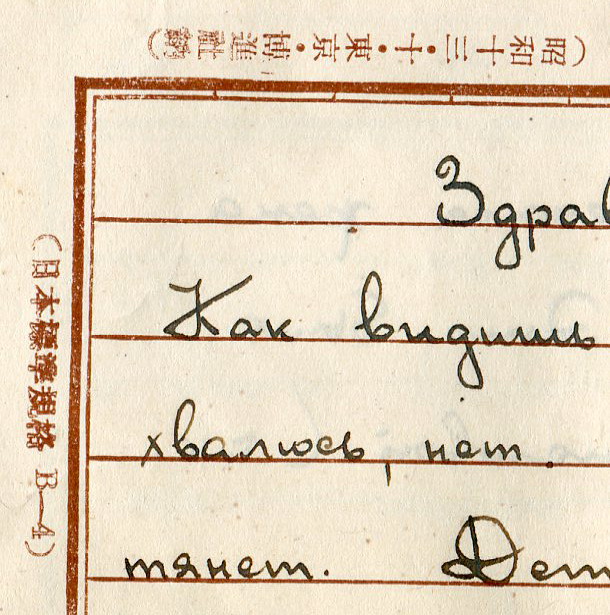 (昭和十三・十・東京・博進社納)
(日本標準規格 B—4)
Здрав
Как видишь
хвалюсь, нет.
тянет. Дет